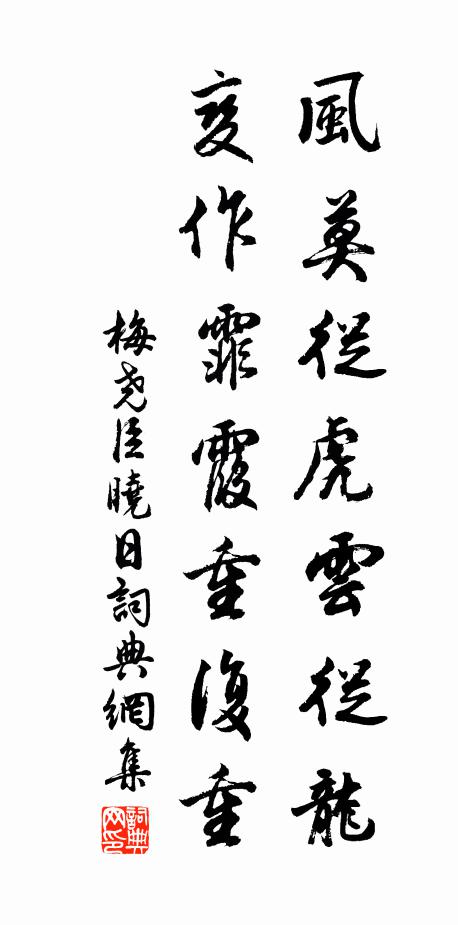 風莫從虎雲從龍
变作霏霞重復重
梅尧臣曉日詞典網集
詞典网印